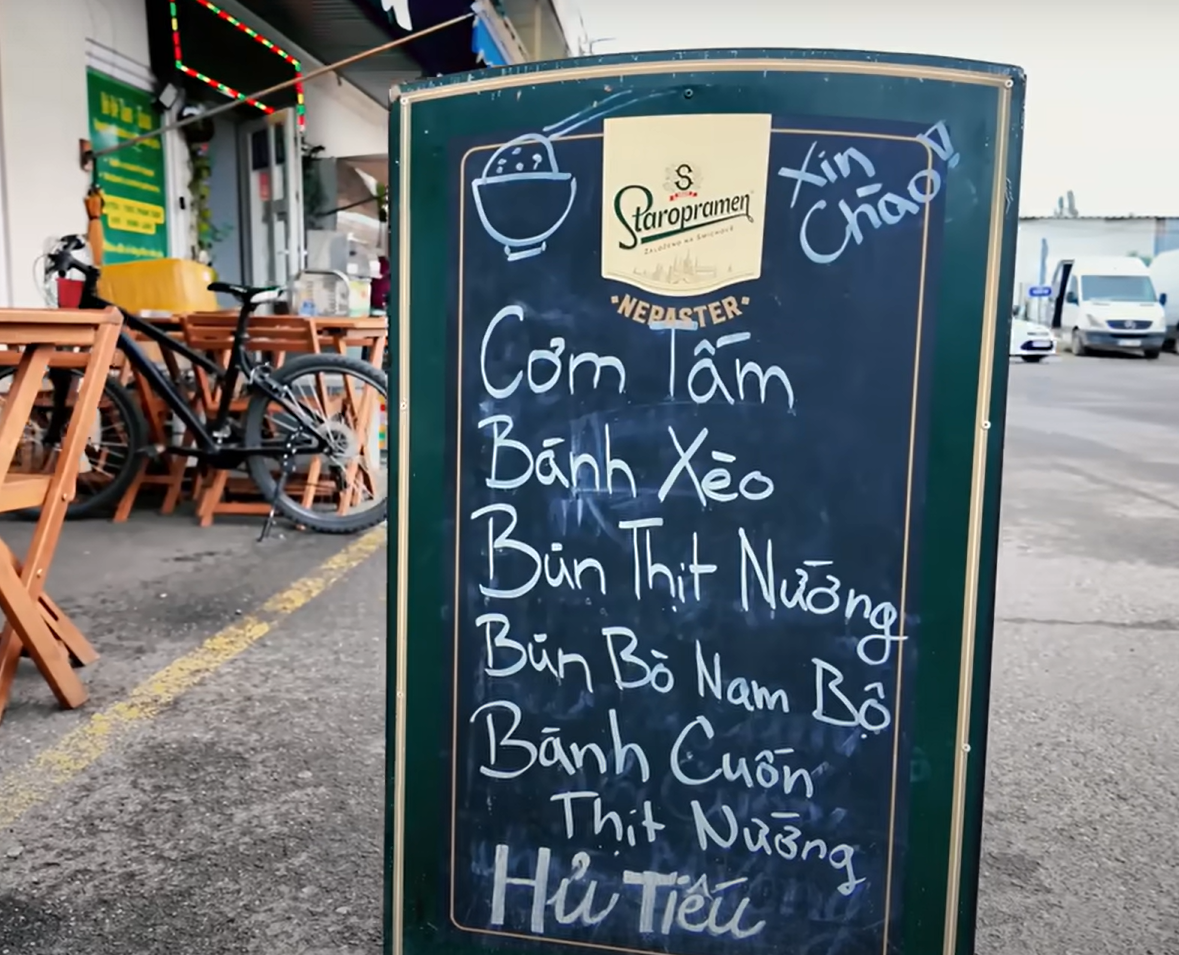 Xin
Chào!
S
Staropramen
ZALOŽENO NA SMÍCHOVĚ
NEPASTER
Cơm Tấm
Bánh Xèo
Bún Thịt Nướng
Bún Bò Nam Bộ
Bánh Cuốn
Thịt Nướng
Hủ Tiếu